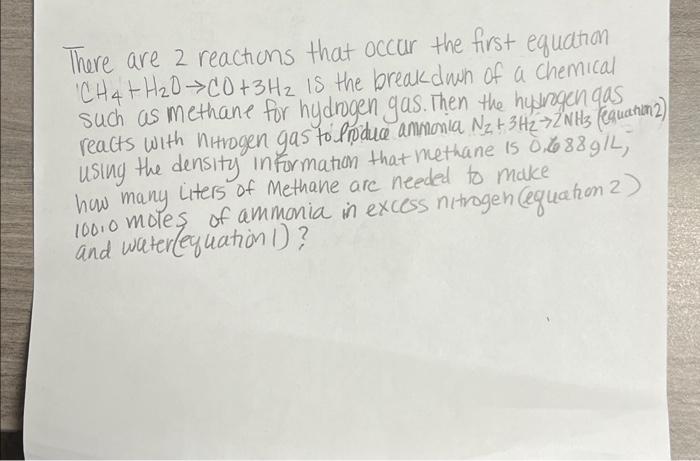 There are 2 reactions that occur the first equation
CH4 + H2O → CO + 3H2 is the breakdown of a chemical
such as methane for hydrogen gas. Then the hydrogen gas
reacts with nitrogen gas to produce ammonia N2 + 3H2 → 2NH3 (equation 2)
using the density information that methane is 0.688g/L,
how many liters of Methane are needed to make
100.0 moles of ammonia in excess nitrogen (equation 2)
and water (equation 1) ?